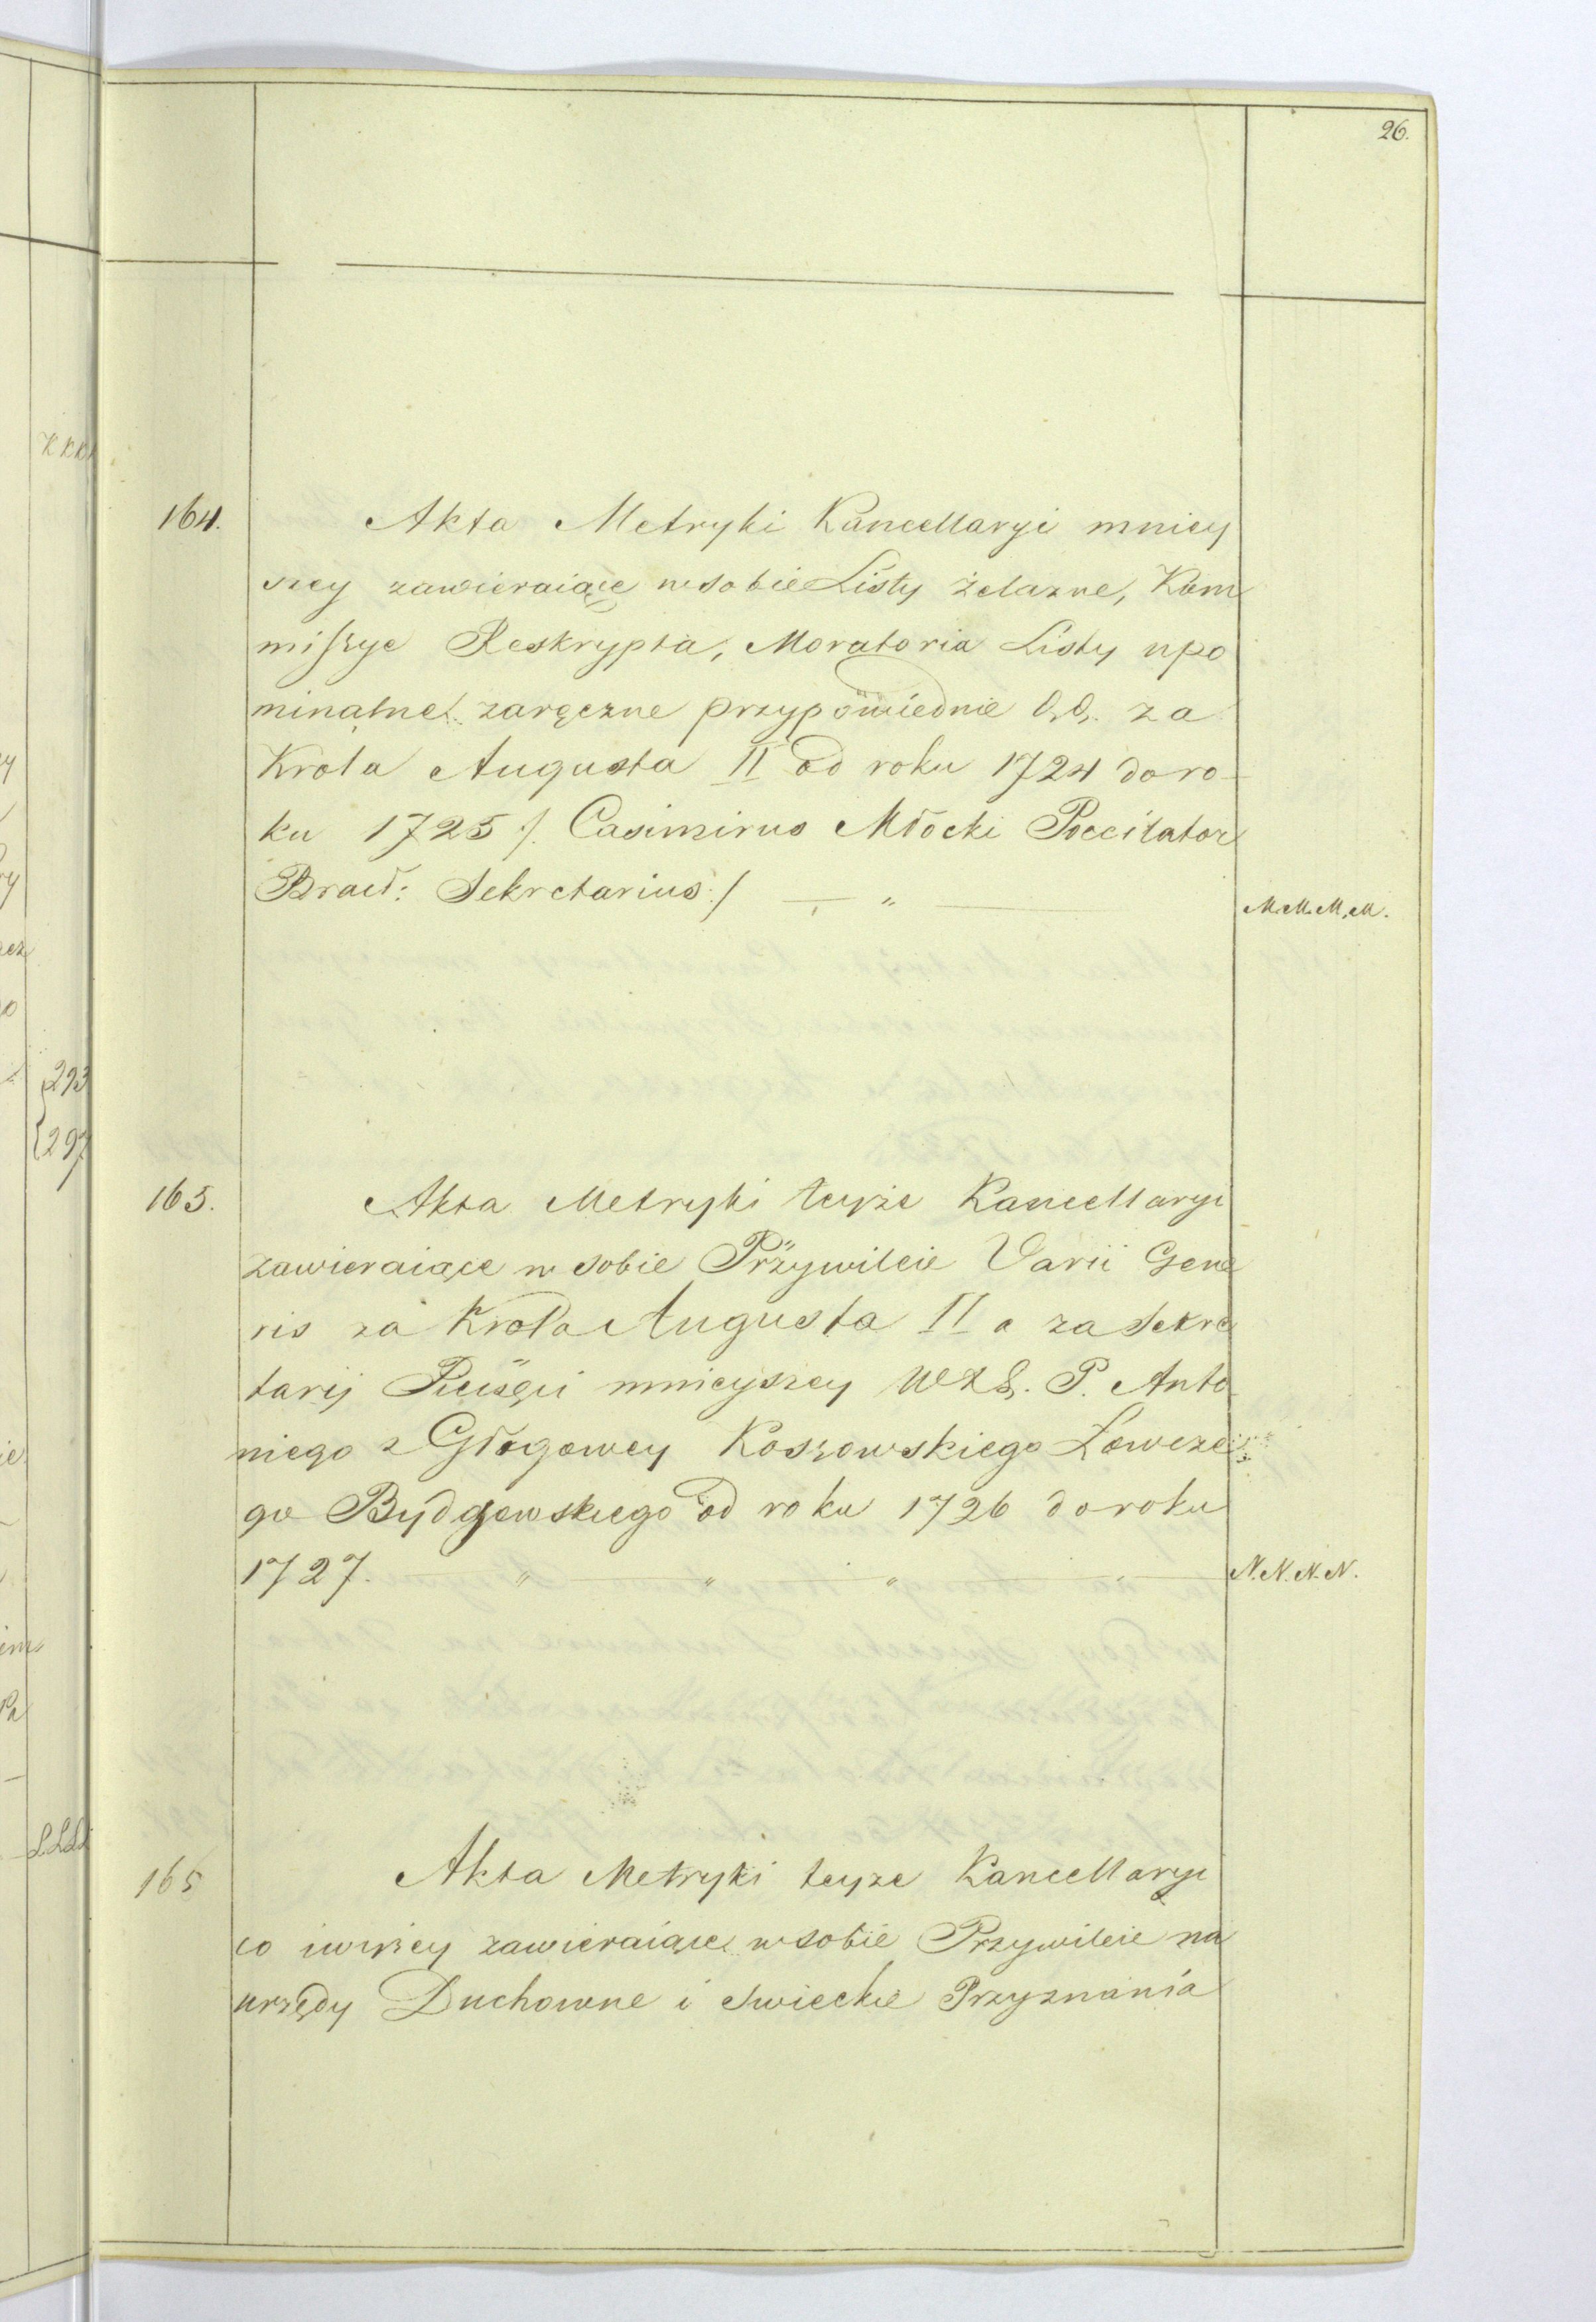 26.
KKK
164. Akta Metryki Kancellaryi mniey
szey zawieraiące w sobie Listy żelazne, Kom
miſzye Reskrypta, Moratoria Listy upo
minalne zaręczne przypowiednie za
Krola Augusta II od roku 1724 do ro-
ku 1725 /. Casimirus Młocki Poccilator
Bracł: Sekretarius ./ — " —
M.M.M.M.
293
297
165. Akta Metryki teyże Kancellaryi
zawieraiące w sobie Przywileie Varii Gene
ris za Krola Augusta II a za Sekre
tarij Pieięci mnieyszey P. Anto
niego z Głogowey Koszowskiego Łowcze
go Bydgowskiego od roku 1726 do roku
1727. — " — " — " — " —
N.N.N.N.
LLLL
165 Akta Metryki teyże Kancellaryi
co i wyżey zawieraiące w sobie Przywileie na
urzędy Duchowne i Swieckie Przyznania